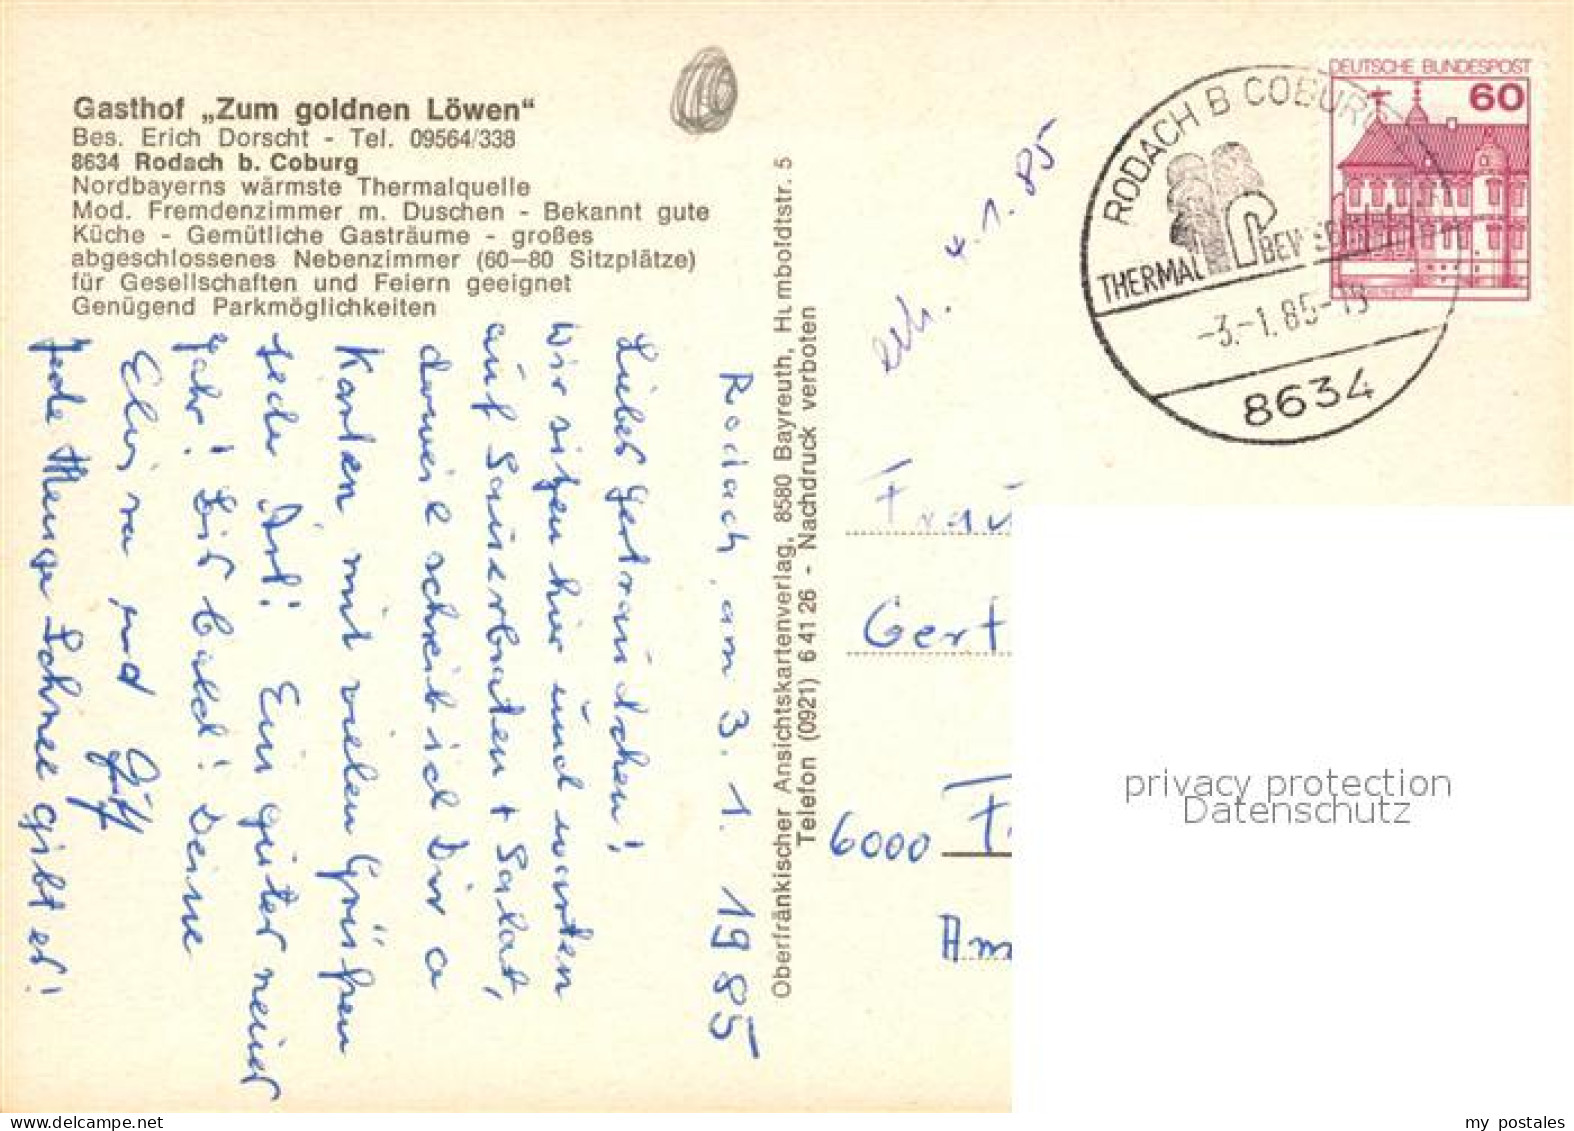 Gasthof „Zum goldnen Löwen“
Bes. Erich Dorscht - Tel. 09564/338
8634 Rodach b. Coburg
Nordbayerns wärmste Thermalquelle
Mod. Fremdenzimmer m. Duschen - Bekannt gute
Küche - Gemütliche Gasträume - großes
abgeschlossenes Nebenzimmer (60–80 Sitzplätze)
für Gesellschaften und Feiern geeignet
Genügend Parkmöglichkeiten
Rodach, am 3. 1. 1985
Liebes Gertraudchen!
Wir sitzen hier und warten
auf Sauerbraten + Salat,
derweil schreib ich Dir a
Karten mit vielen Grüßen
jeder Art! Ein guter neuer
Jahr! Bis bald! Deine
Elvira und
Jede Menge Schnee gibt es!
Oberfränkischer Ansichtskartenverlag, 8580 Bayreuth, Humboldtstr. 5
Telefon (0921) 6 41 26 - Nachdruck verboten
erh. 4.1.85
RODACH B COBURG
THERMAL
-3.-1.85-
8634
DEUTSCHE BUNDESPOST
60
Frau
Gert
6000 F
Am
privacy protection
Datenschutz
my postales